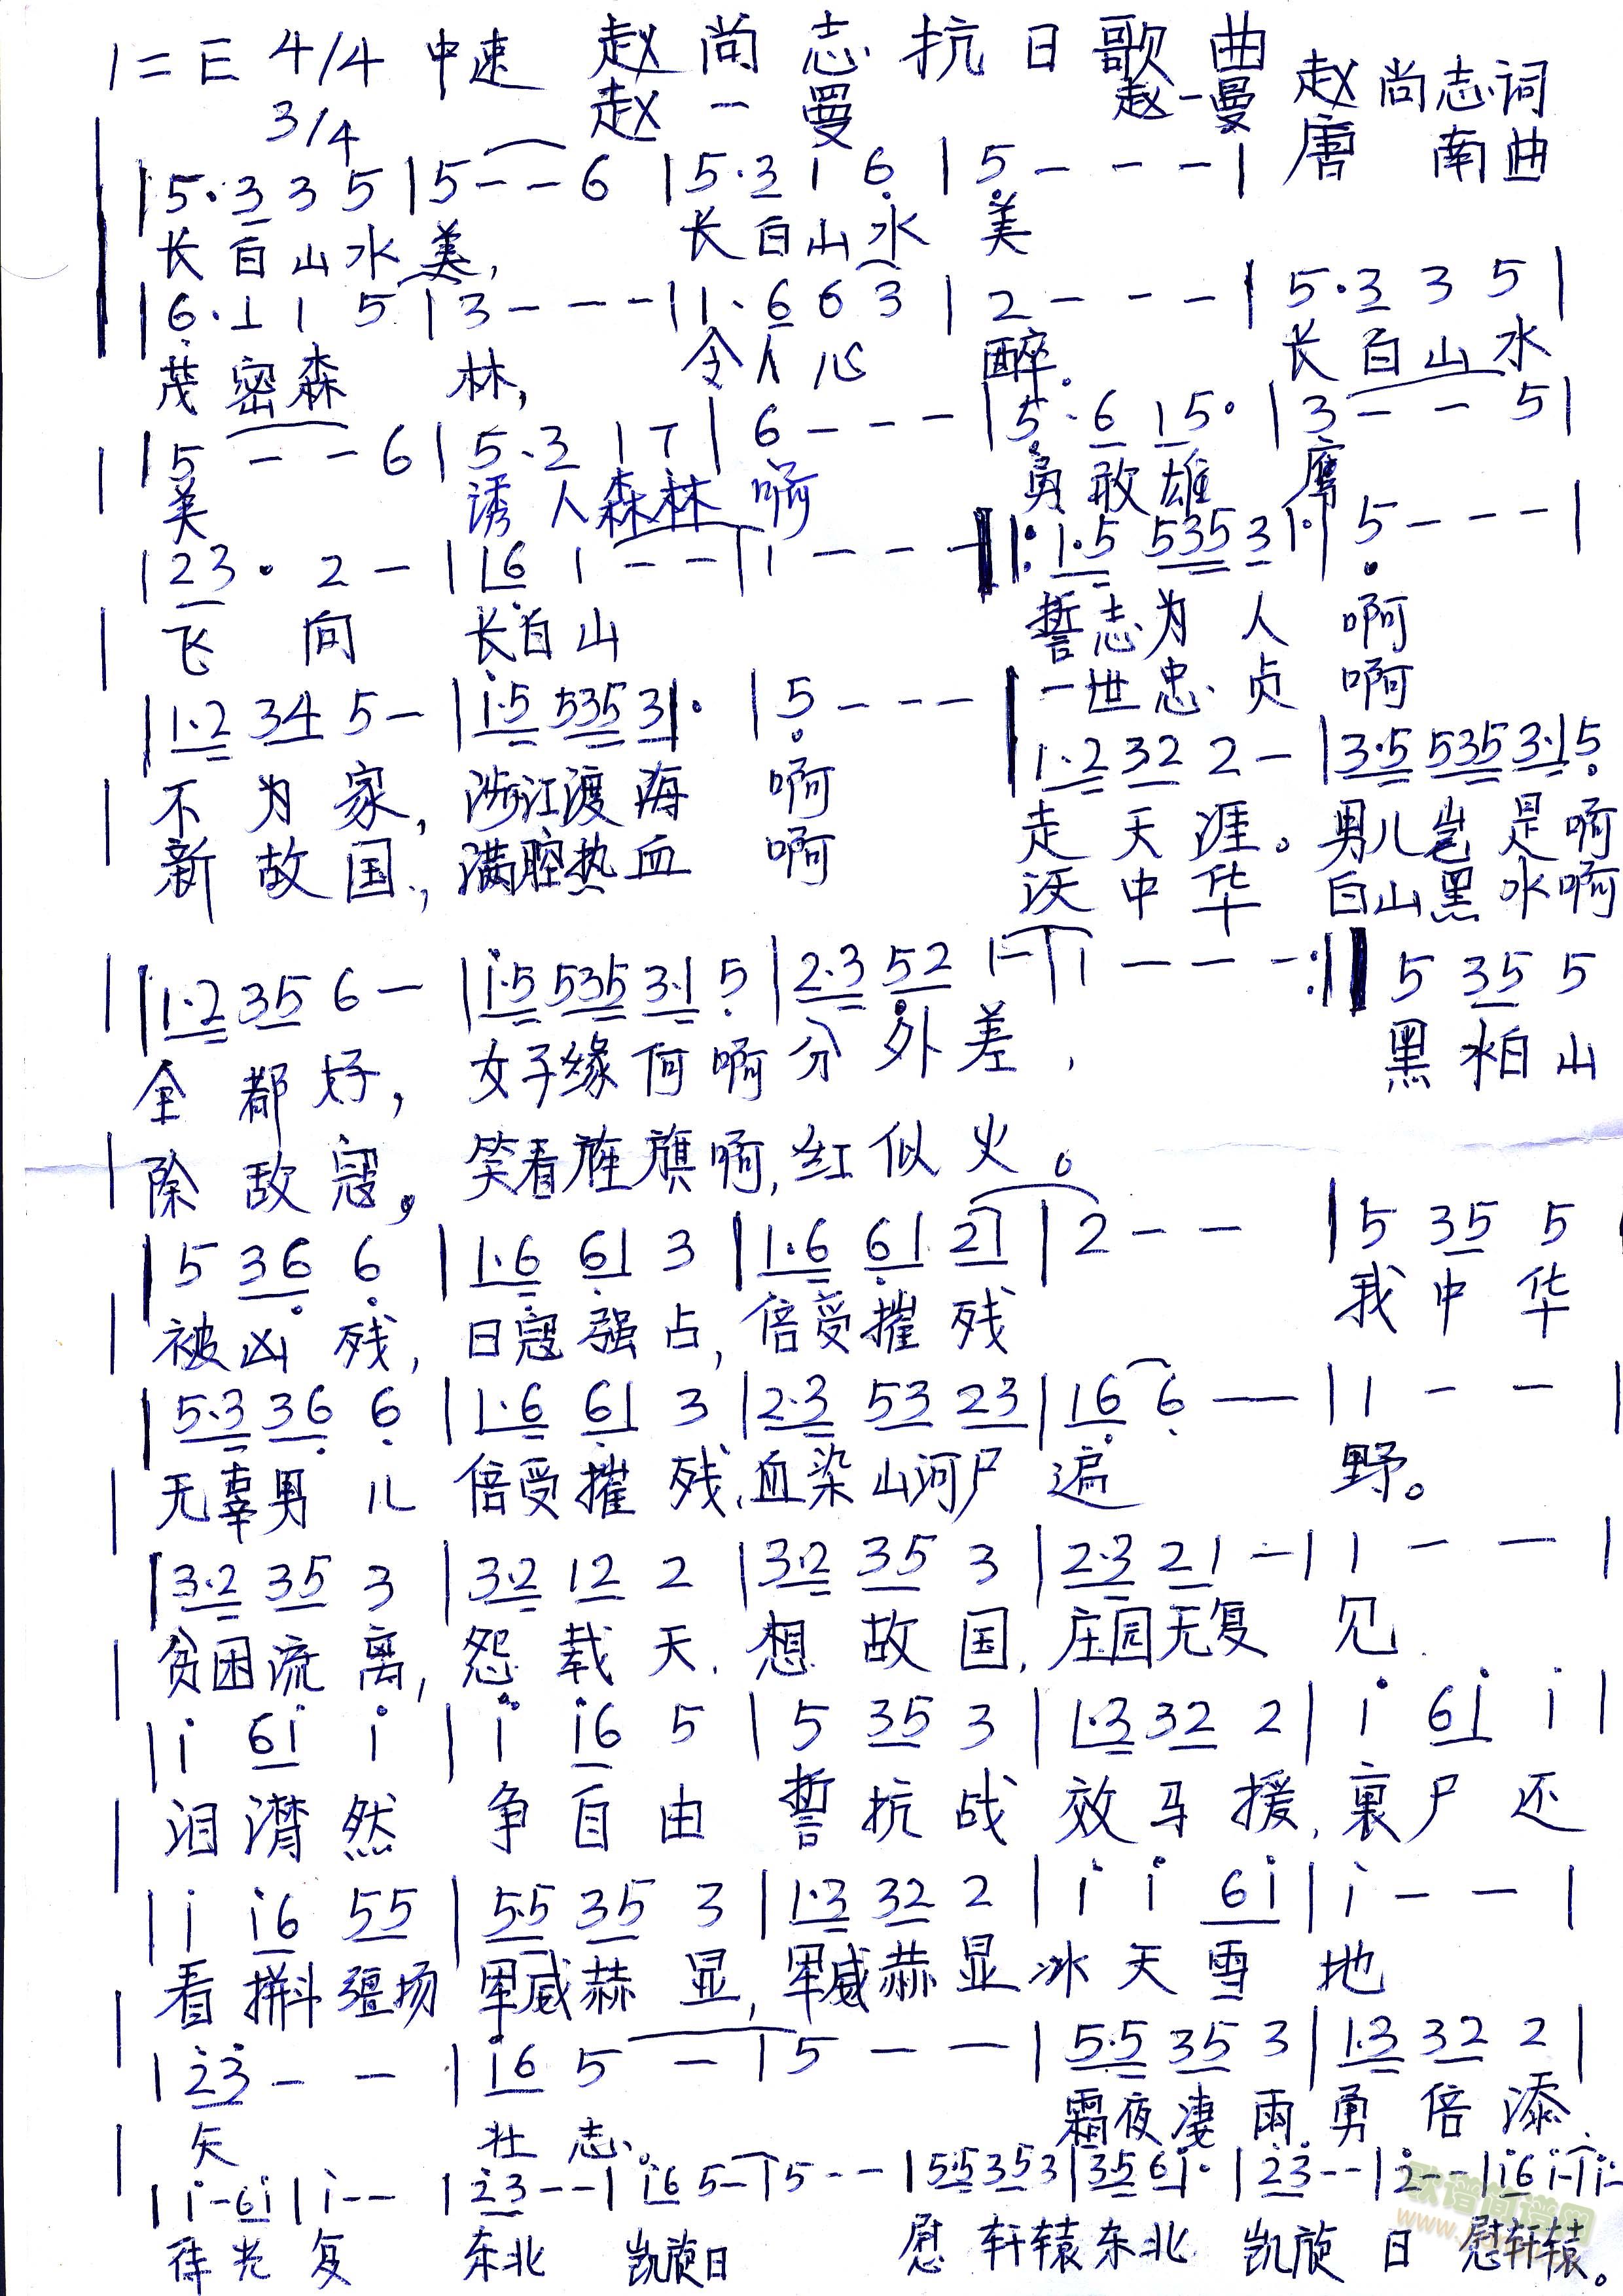 1=E 4/4 中速 赵尚志抗日歌曲
3/4 赵一曼 赵一曼 赵尚志词
唐南曲
|5·3 3 5|5--6|5·3 1 6|5---|
长白山水美, 长白山水美
|6·1 1 5|3---|1·6 6 3|2---|5·3 3 5|
茂密森林, 令人心醉. 长白山水
|5--6|5·3 1 7|6---|5·6 1 5·|3--5|
美 诱人森林啊 勇敢雄鹰
|23·2-|16 1--|1---‖:1·5 535 3 1·|5---|
飞向长白山 誓志为人啊
一世忠贞啊
|1·2 34 5-|i·5 535 31·|5---|1·2 32 2-|3·5 535 3·1 5
不为家, 涉江渡海啊 走天涯。男儿岂是啊
新故国, 满腔热血啊 沃中华 白山黑水啊
|1·2 35 6-|i·5 535 3·1 5|2·3 52 1-|1---:‖5 35 5
全都好, 女子缘何啊分外差, 黑水白山
除敌寇, 笑看旌旗啊, 红似火。
|5 36 6|1·6 61 3|1·6 61 21|2--|5 35 5
被凶残, 日寇强占, 倍受摧残 我中华
|5·3 36 6|1·6 61 3|2·3 53 23|16 6—|1--|
无辜男儿 倍受摧残, 血染山河尸遍野。
|3·2 35 3|3·2 12 2|3·2 35 3|2·3 21-|1--|
贫困流离, 怨载天. 想故国, 庄园无复见
|i 6i i|i i6 5|5 35 3|1·3 32 2|i 6i i|
泪潸然 争自由 誓抗战 效马援, 裹尸还
|i i6 55|5·5 35 3|1·3 32 2|i i 6i|i--|
看拼斗疆场 军威赫显, 军威赫显冰天雪地
|23--|i6 5-|5--|5·5 35 3|1·3 32 2|
矢壮志。 霜夜凄雨勇倍添
|i-6i|i--|23--|i6 5-|5--|5·5 35 3|35 6i·|23--|2--|i6 i-|i-
待光复 东北凯旋日 慰轩辕东北凯旋日慰轩辕。
歌谱简谱网